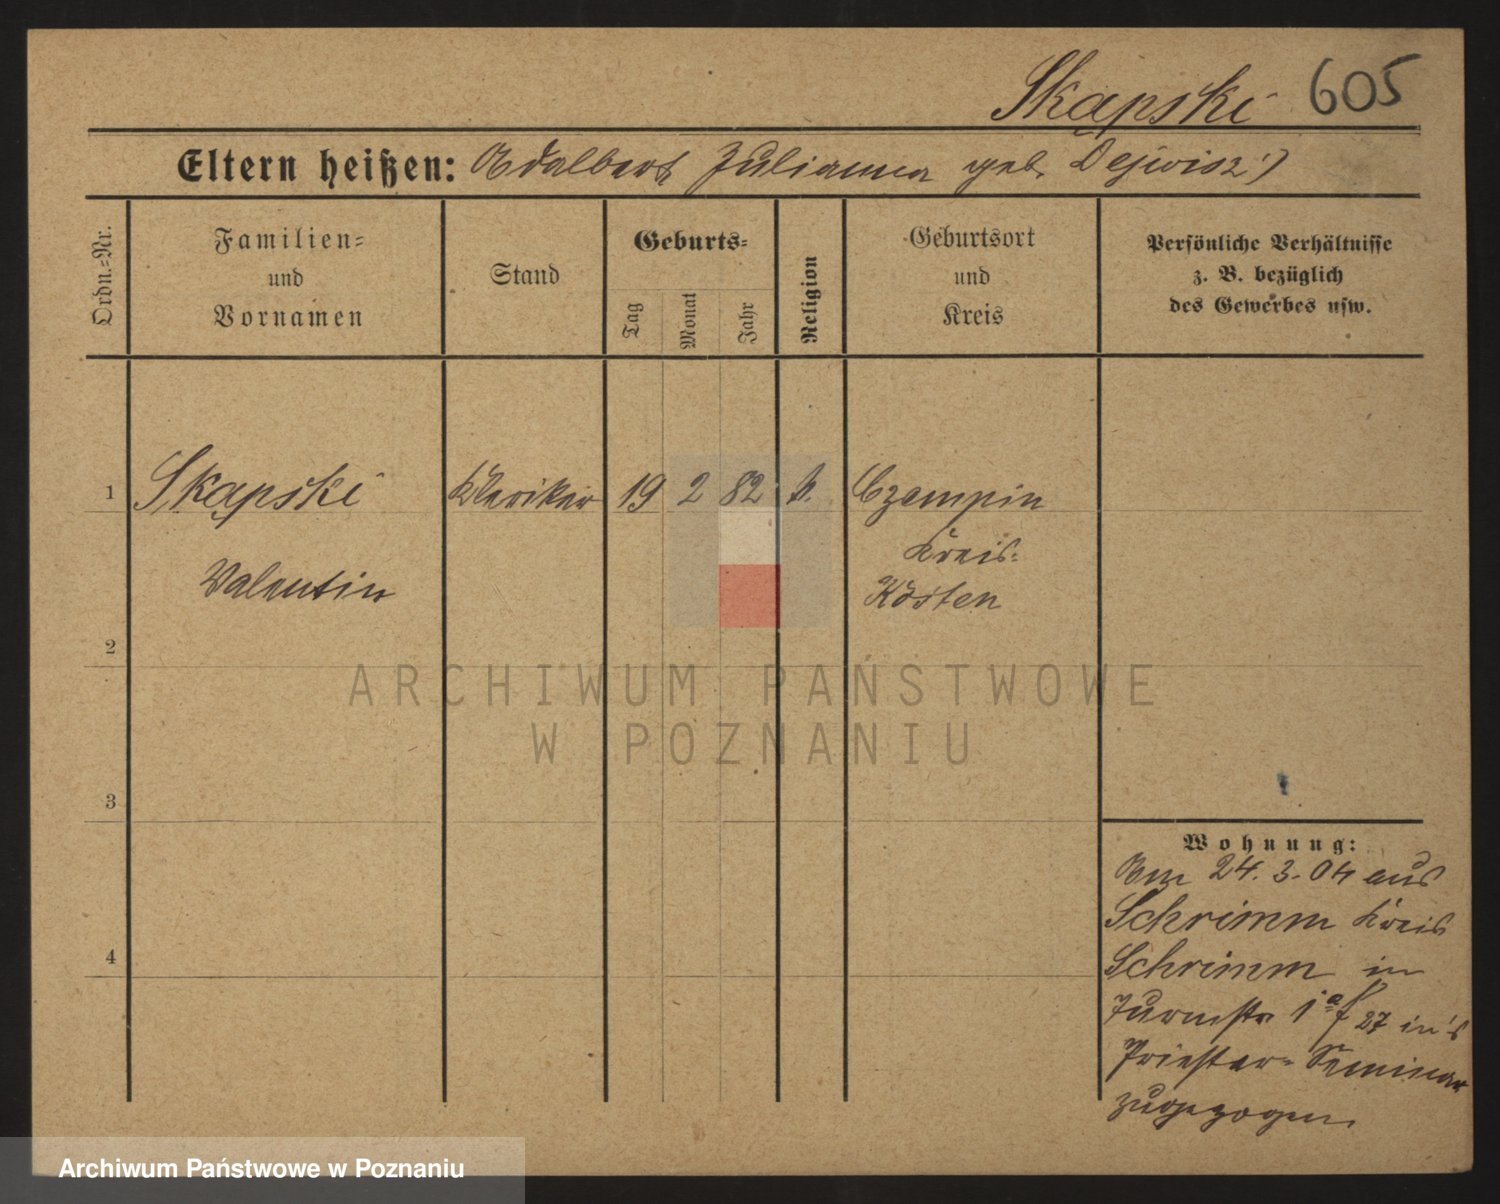 Skąpski 605
Eltern heißen: Adalbert Julianna geb. Dejwisz?)
Ordn.-Nr.
Familien-
und
Vornamen
Stand
Geburts-
Tag
Monat
Jahr
Religion
Geburtsort
und
Kreis
Persönliche Verhältnisse
z. B. bezüglich
des Gewerbes usw.
1 Skąpski Kleriker 19 2 82 k. Czempin
Kreis:
Valentin Kosten
2
ARCHIWUM PAŃSTWOWE
W POZNANIU
3
Wohnung:
Am 24.3.04 aus
Schrimm Kreis
4 Schrimm in
Turmstr 1a/27 in's
Priester-Seminar
zugezogen.
Archiwum Państwowe w Poznaniu